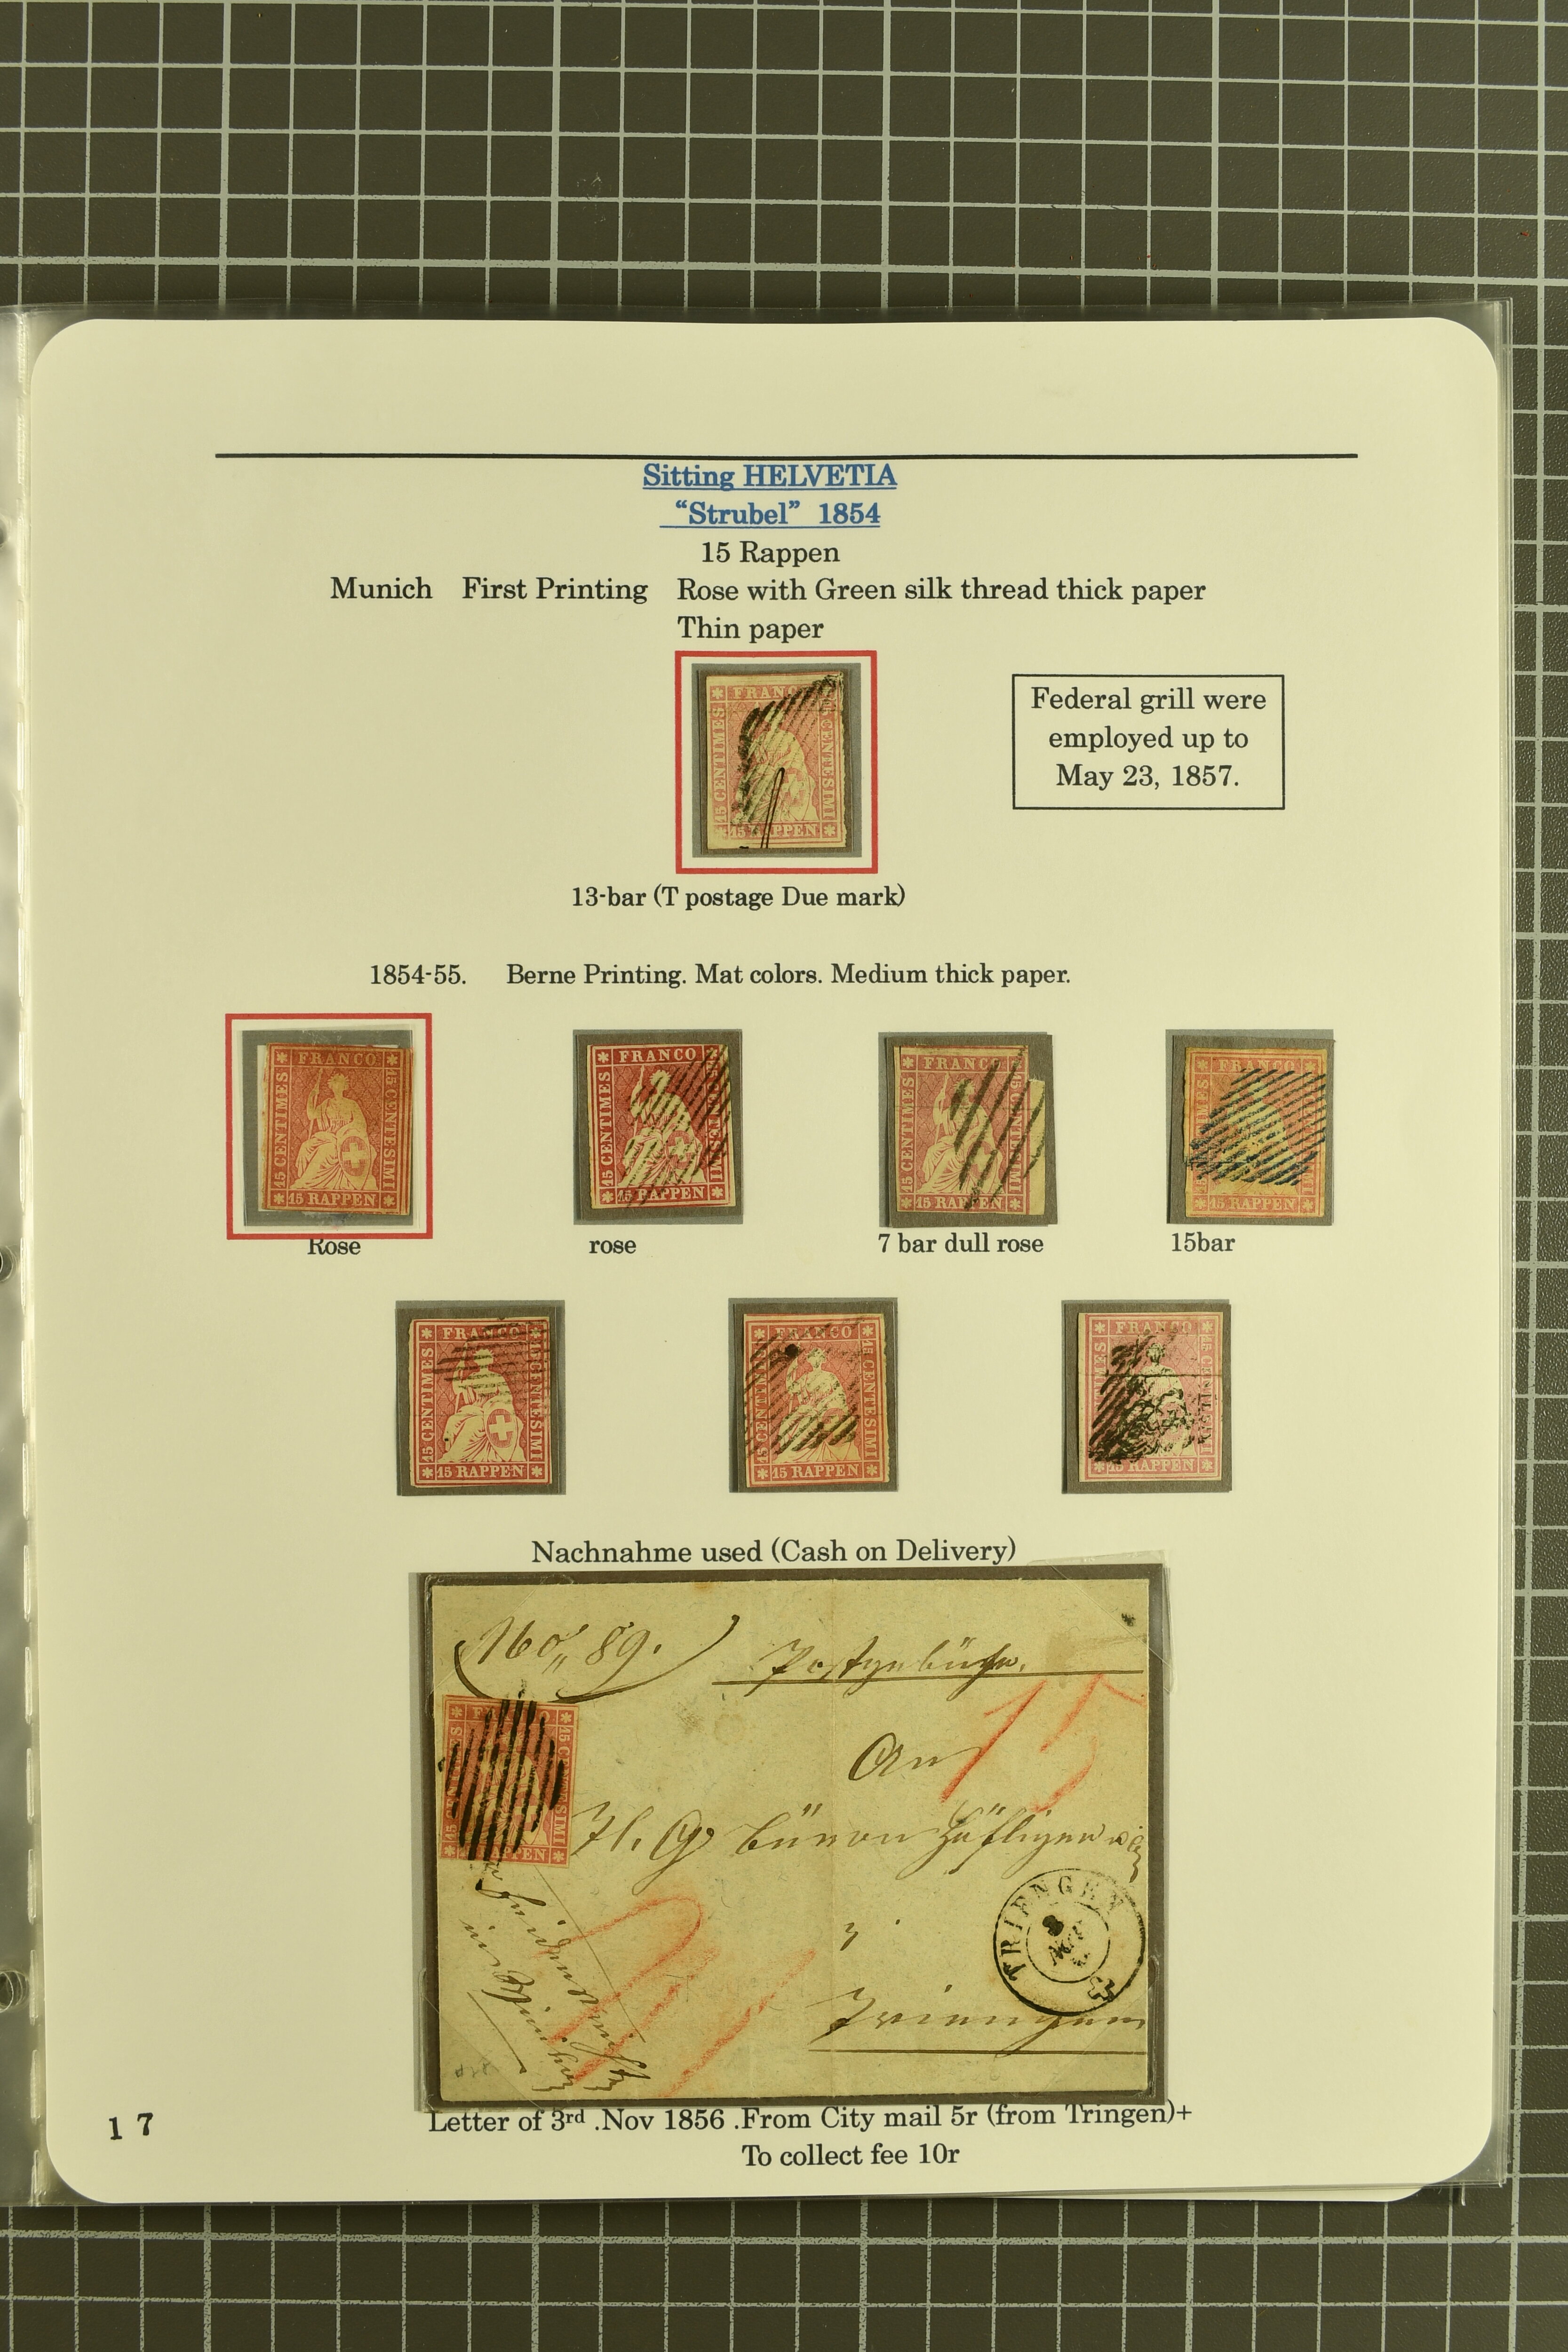 Sitting HELVETIA
“Strubel” 1854
15 Rappen
Munich First Printing Rose with Green silk thread thick paper
Thin paper
FRANCO
15 CENTIMES
CENTESIMI
15 RAPPEN
Federal grill were
employed up to
May 23, 1857.
13-bar (T postage Due mark)
1854-55. Berne Printing. Mat colors. Medium thick paper.
FRANCO
15 CENTIMES
15 CENTESIMI
15 RAPPEN
FRANCO
15 CENTIMES
15 RAPPEN
FRANCO
15 CENTIMES
15 CENTESIMI
15 RAPPEN
FRANCO
15 RAPPEN
Rose
rose
7 bar dull rose
15bar
FRANCO
15 CENTIMES
15 CENTESIMI
15 RAPPEN
FRANCO
15 CENTIMES
15 CENTESIMI
15 RAPPEN
FRANCO
15 RAPPEN
Nachnahme used (Cash on Delivery)
No 89.
15
An
15 CENTESIMI
TRIENGEN
Triengen
Letter of 3rd .Nov 1856 .From City mail 5r (from Tringen)+
To collect fee 10r
17